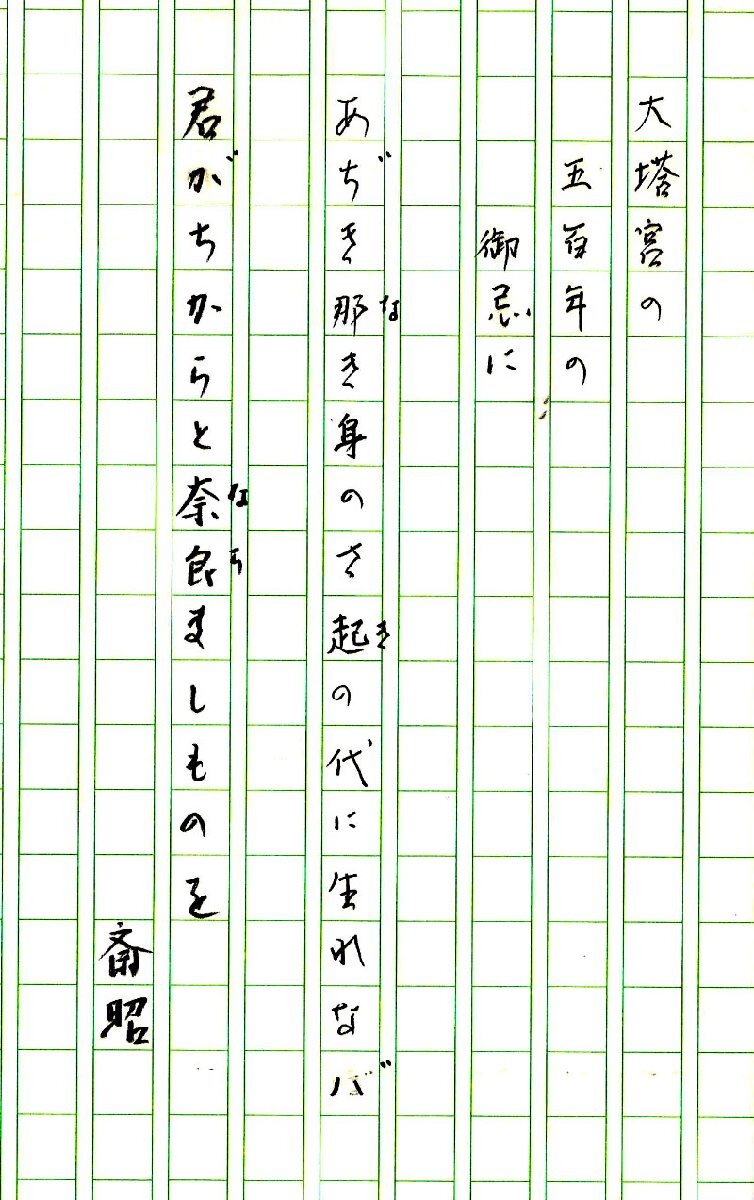 大塔宮の
五百年の
御忌に
あぢき那き身のさ起の代に生れなバ
な
き
君がちからと奈良ましものを
なら
斉昭